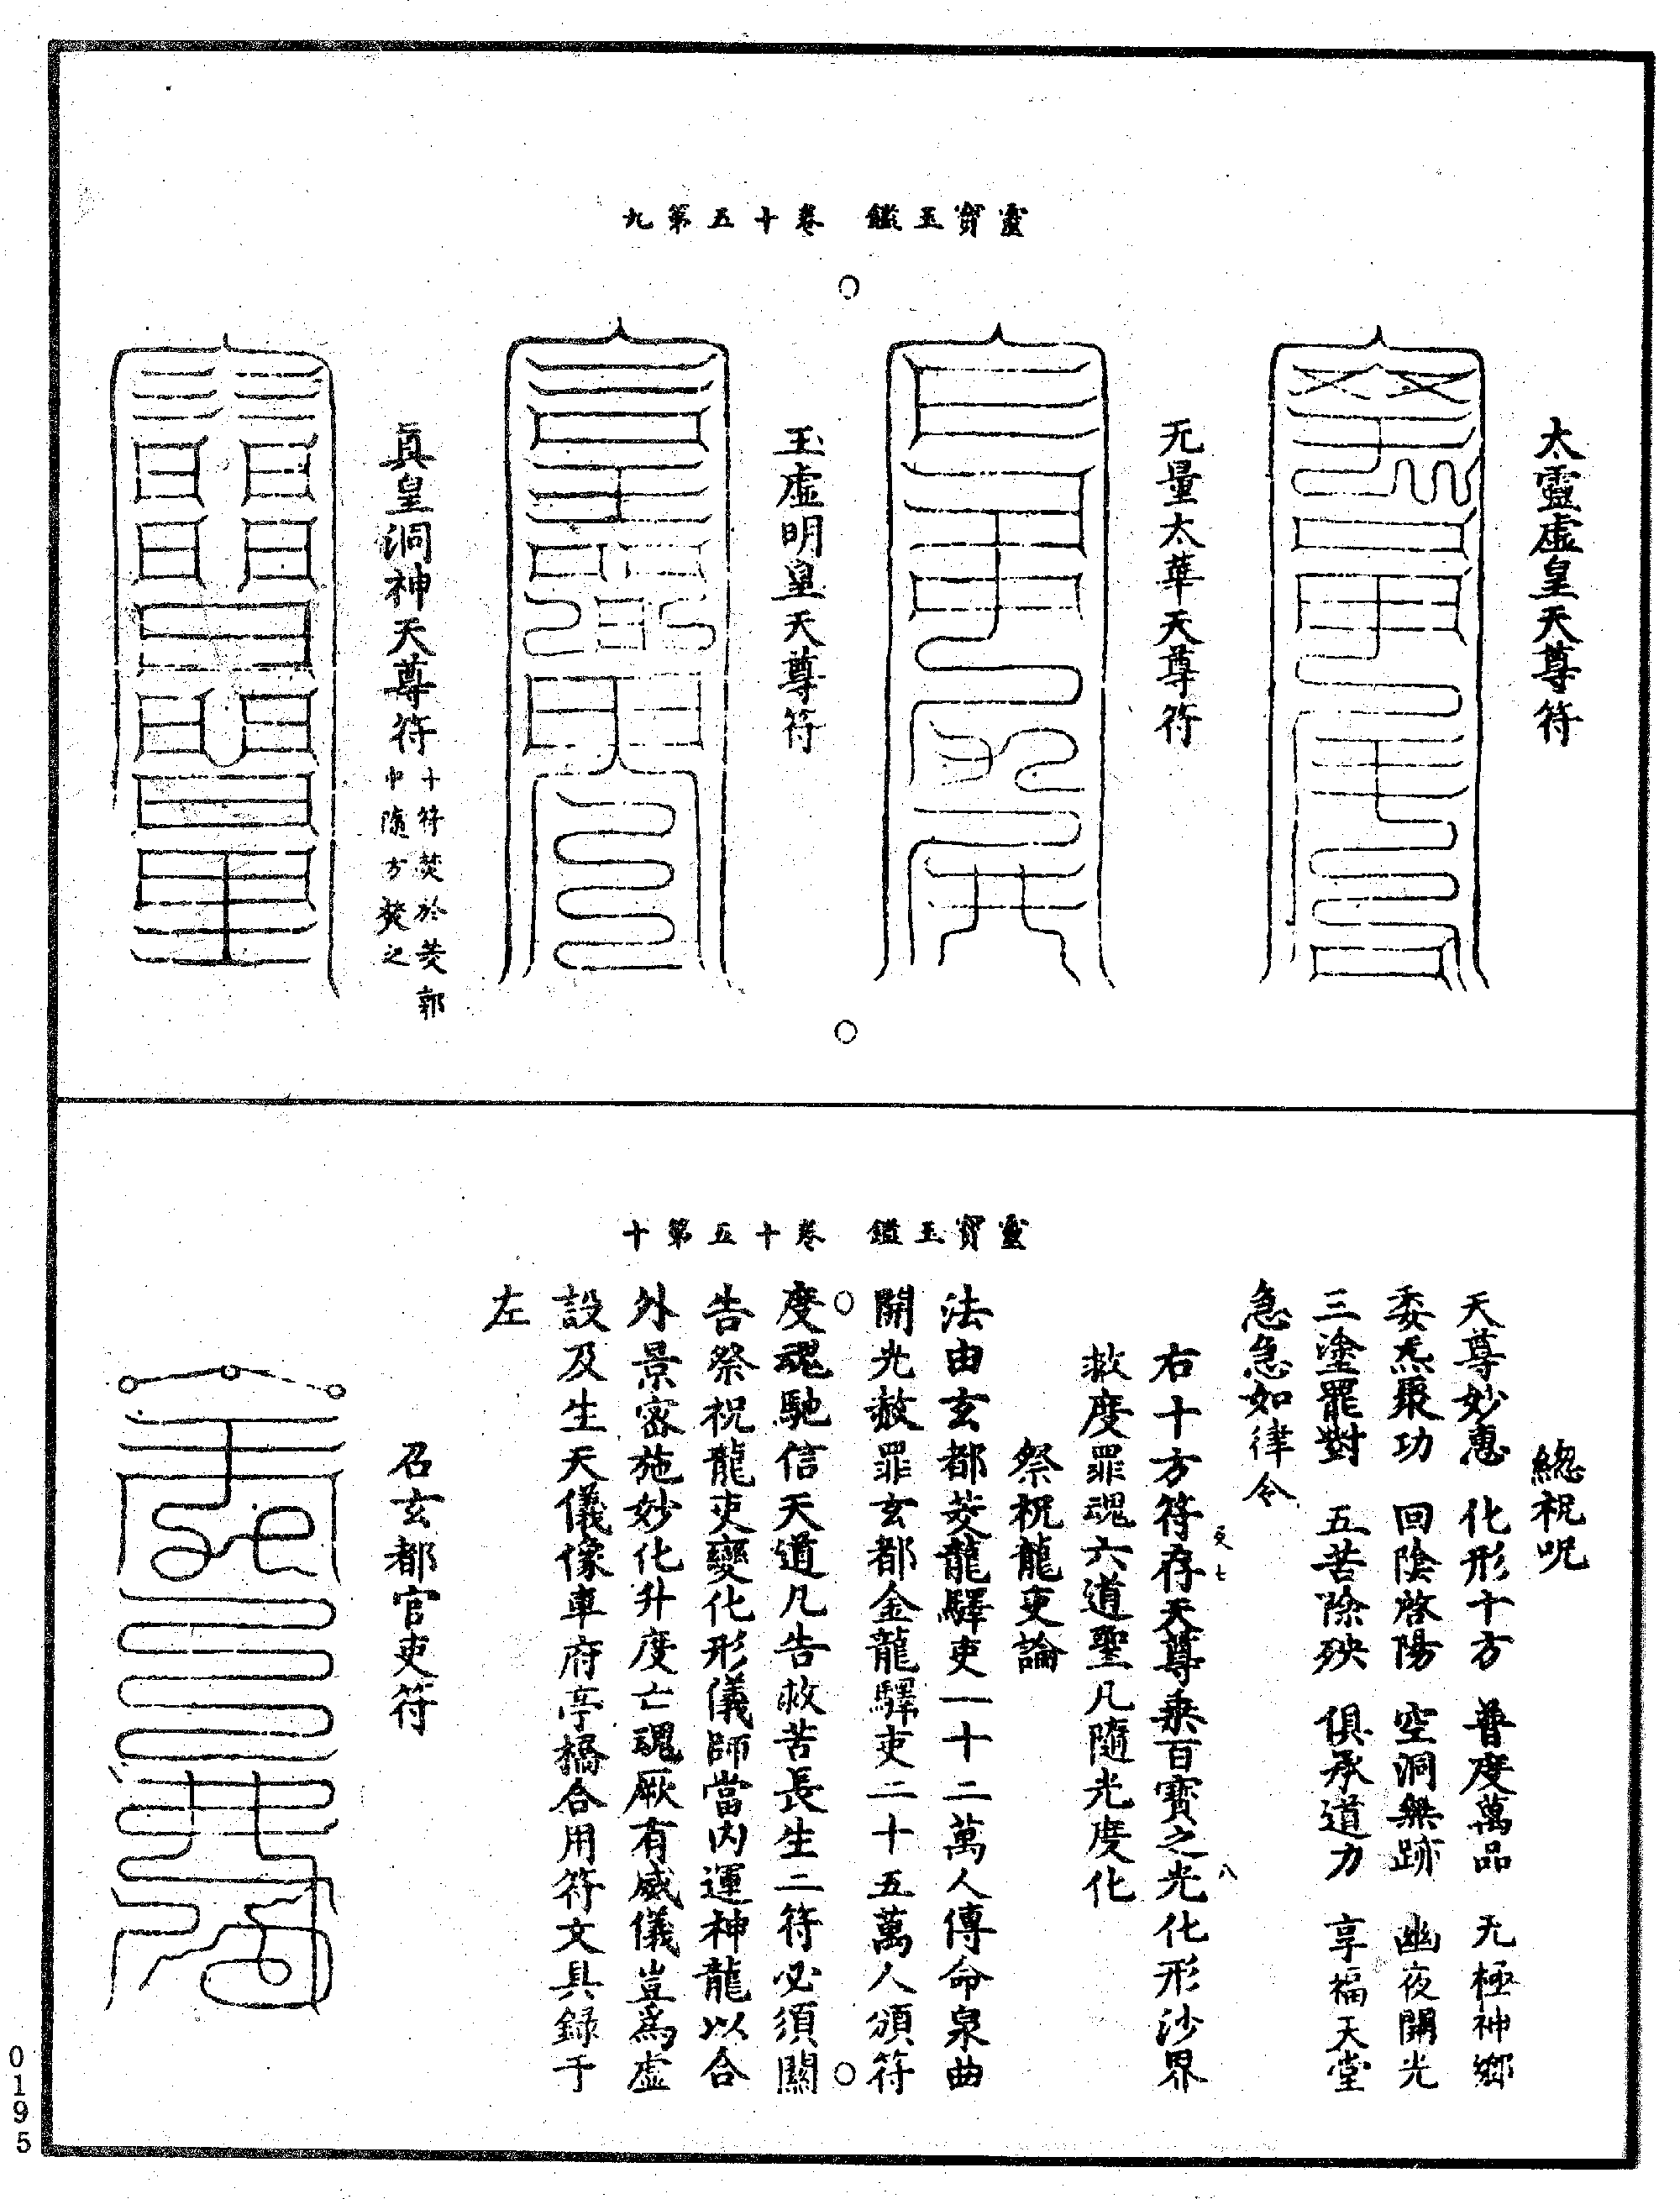 靈寶玉鑑 卷十五第九
太靈虛皇天尊符
无量太華天尊符
玉虛明皇天尊符
真皇洞神天尊符
十符焚於茭郭
中隨方焚之
靈寶玉鑑 卷十五第十
總祝呪
天尊妙惠 化形十方 普度萬品 无極神鄉
委炁聚功 回陰啓陽 空洞無跡 幽夜開光
三塗罷對 五苦除殃 俱承道力 享福天堂
急急如律令
右十方符存天尊乘百寶之光化形沙界
救度罪魂六道聖凡隨光度化
祭祝龍吏論
法由玄都茭龍驛吏一十二萬人傳命泉曲
開光赦罪玄都金龍驛吏二十五萬人頒符
度魂馳信天道凡告救苦長生二符必須關
告祭祝龍吏變化形儀師當內運神龍以合
外景密施妙化升度亡魂厥有威儀豈爲虛
設及生天儀像車府亭橋合用符文具録于
左
召玄都官吏符
0195